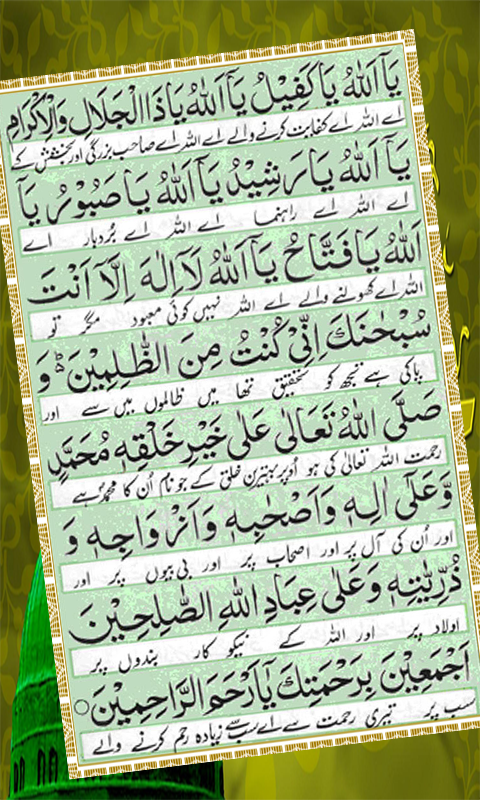 يَآ اَللّٰهُ يَا كَفِيْلُ يَآ اَللّٰهُ يَا ذَا الْجَلَالِ وَالْاِكْرَامِ
اے اللہ اے کفایت کرنے والے اے اللہ اے صاحب بزرگی اور بخشش کے
يَآ اَللّٰهُ يَا رَشِيْدُ يَآ اَللّٰهُ يَا صَبُوْرُ يَآ
اے اللہ اے راہنما اے اللہ اے بُردبار اے
اَللّٰهُ يَا فَتَّاحُ يَآ اَللّٰهُ لَآ اِلٰهَ اِلَّآ اَنْتَ
اللہ اے کھولنے والے اے اللہ نہیں کوئی معبود مگر تو
سُبْحٰنَكَ اِنِّيْ كُنْتُ مِنَ الظّٰلِمِيْنَ ط وَ
پاکی ہے تجھ کو تحقیق تھا میں ظالموں میں سے اور
صَلَّى اللّٰهُ تَعَالٰى عَلٰى خَيْرِ خَلْقِهٖ مُحَمَّدٍ
رحمت اللہ تعالٰی کی ہو اُوپر بہترین خلق کے جو نام اُن کا محمدؐ ہے
وَّعَلٰٓى اٰلِهٖ وَاَصْحٰبِهٖ وَاَزْوَاجِهٖ وَ
اور اُن کی آل پر اور اصحاب پر اور بی بیوں پر اور
ذُرِّيّٰتِهٖ وَعَلٰى عِبَادِ اللّٰهِ الصّٰلِحِيْنَ
اولاد پر اور اللہ کے نیکو کار بندوں پر
اَجْمَعِيْنَ بِرَحْمَتِكَ يَآ اَرْحَمَ الرَّاحِمِيْنَ ○
سب پر تیری رحمت سے اے سب سے زیادہ رحم کرنے والے